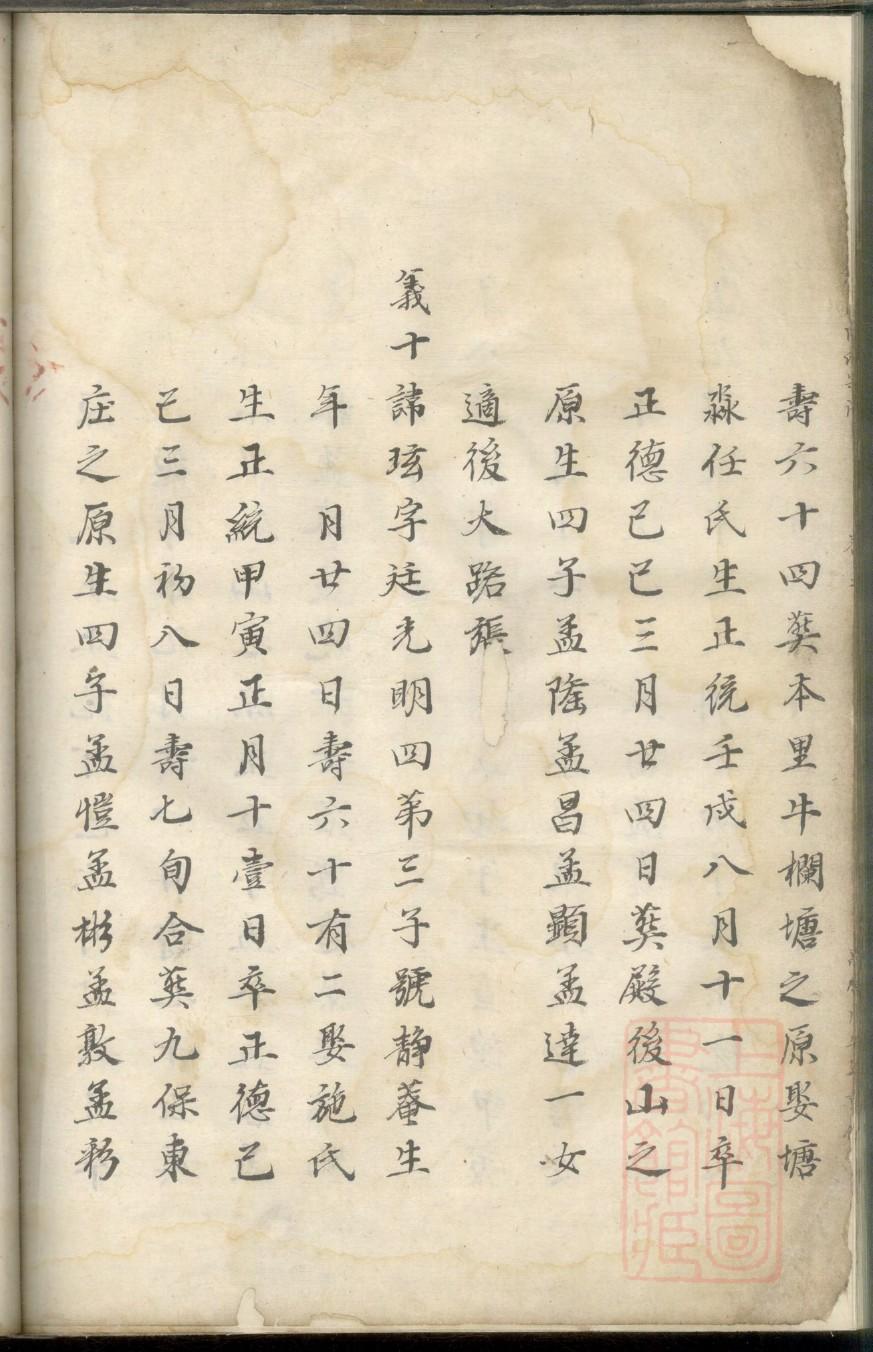 壽六十四葬本里牛欄塘之原娶塘
淼任氏生正统壬戌八月十一日卒
正德己巳三月廿四日葬殿後山之
原生四子孟隆孟昌孟顕孟達一女
適後大路張
義十諱玹字廷光明四第三子號静菴生
年 月廿四日壽六十有二娶施氏
生正統甲寅正月十壹日卒正德己
巳三月初八日壽七旬合葬九保東
庄之原生四子孟愷孟彬孟敦孟彩
上海圖書館藏